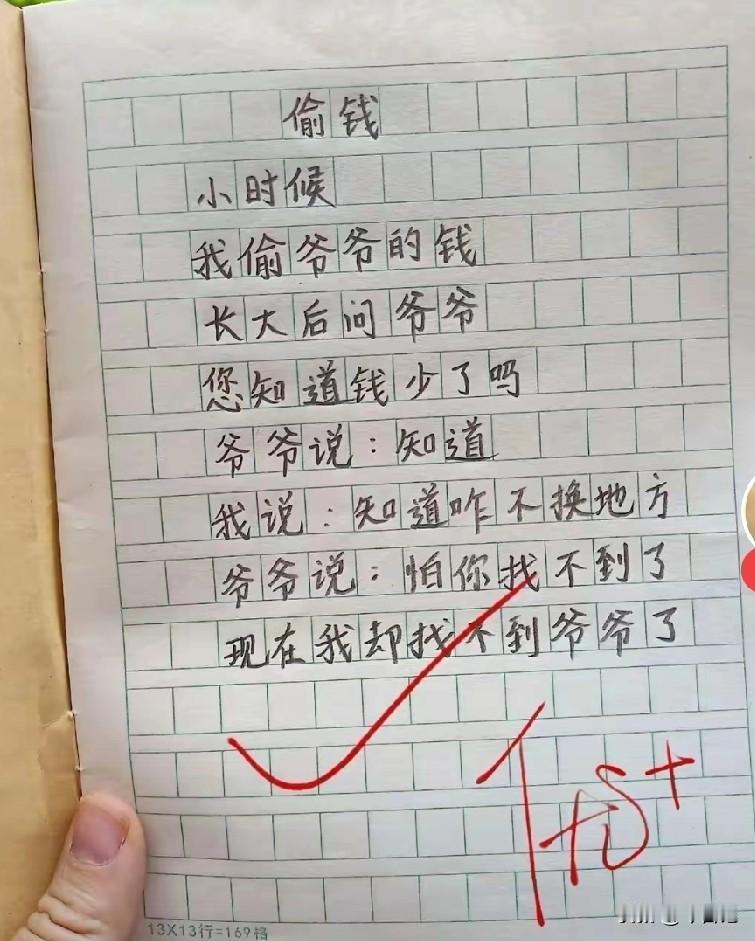 偷钱
小时候
我偷爷爷的钱
长大后问爷爷
您知道钱少了吗
爷爷说：知道
我说：知道咋不换地方
爷爷说：怕你找不到了
现在我却找不到爷爷了
13X13行=169档